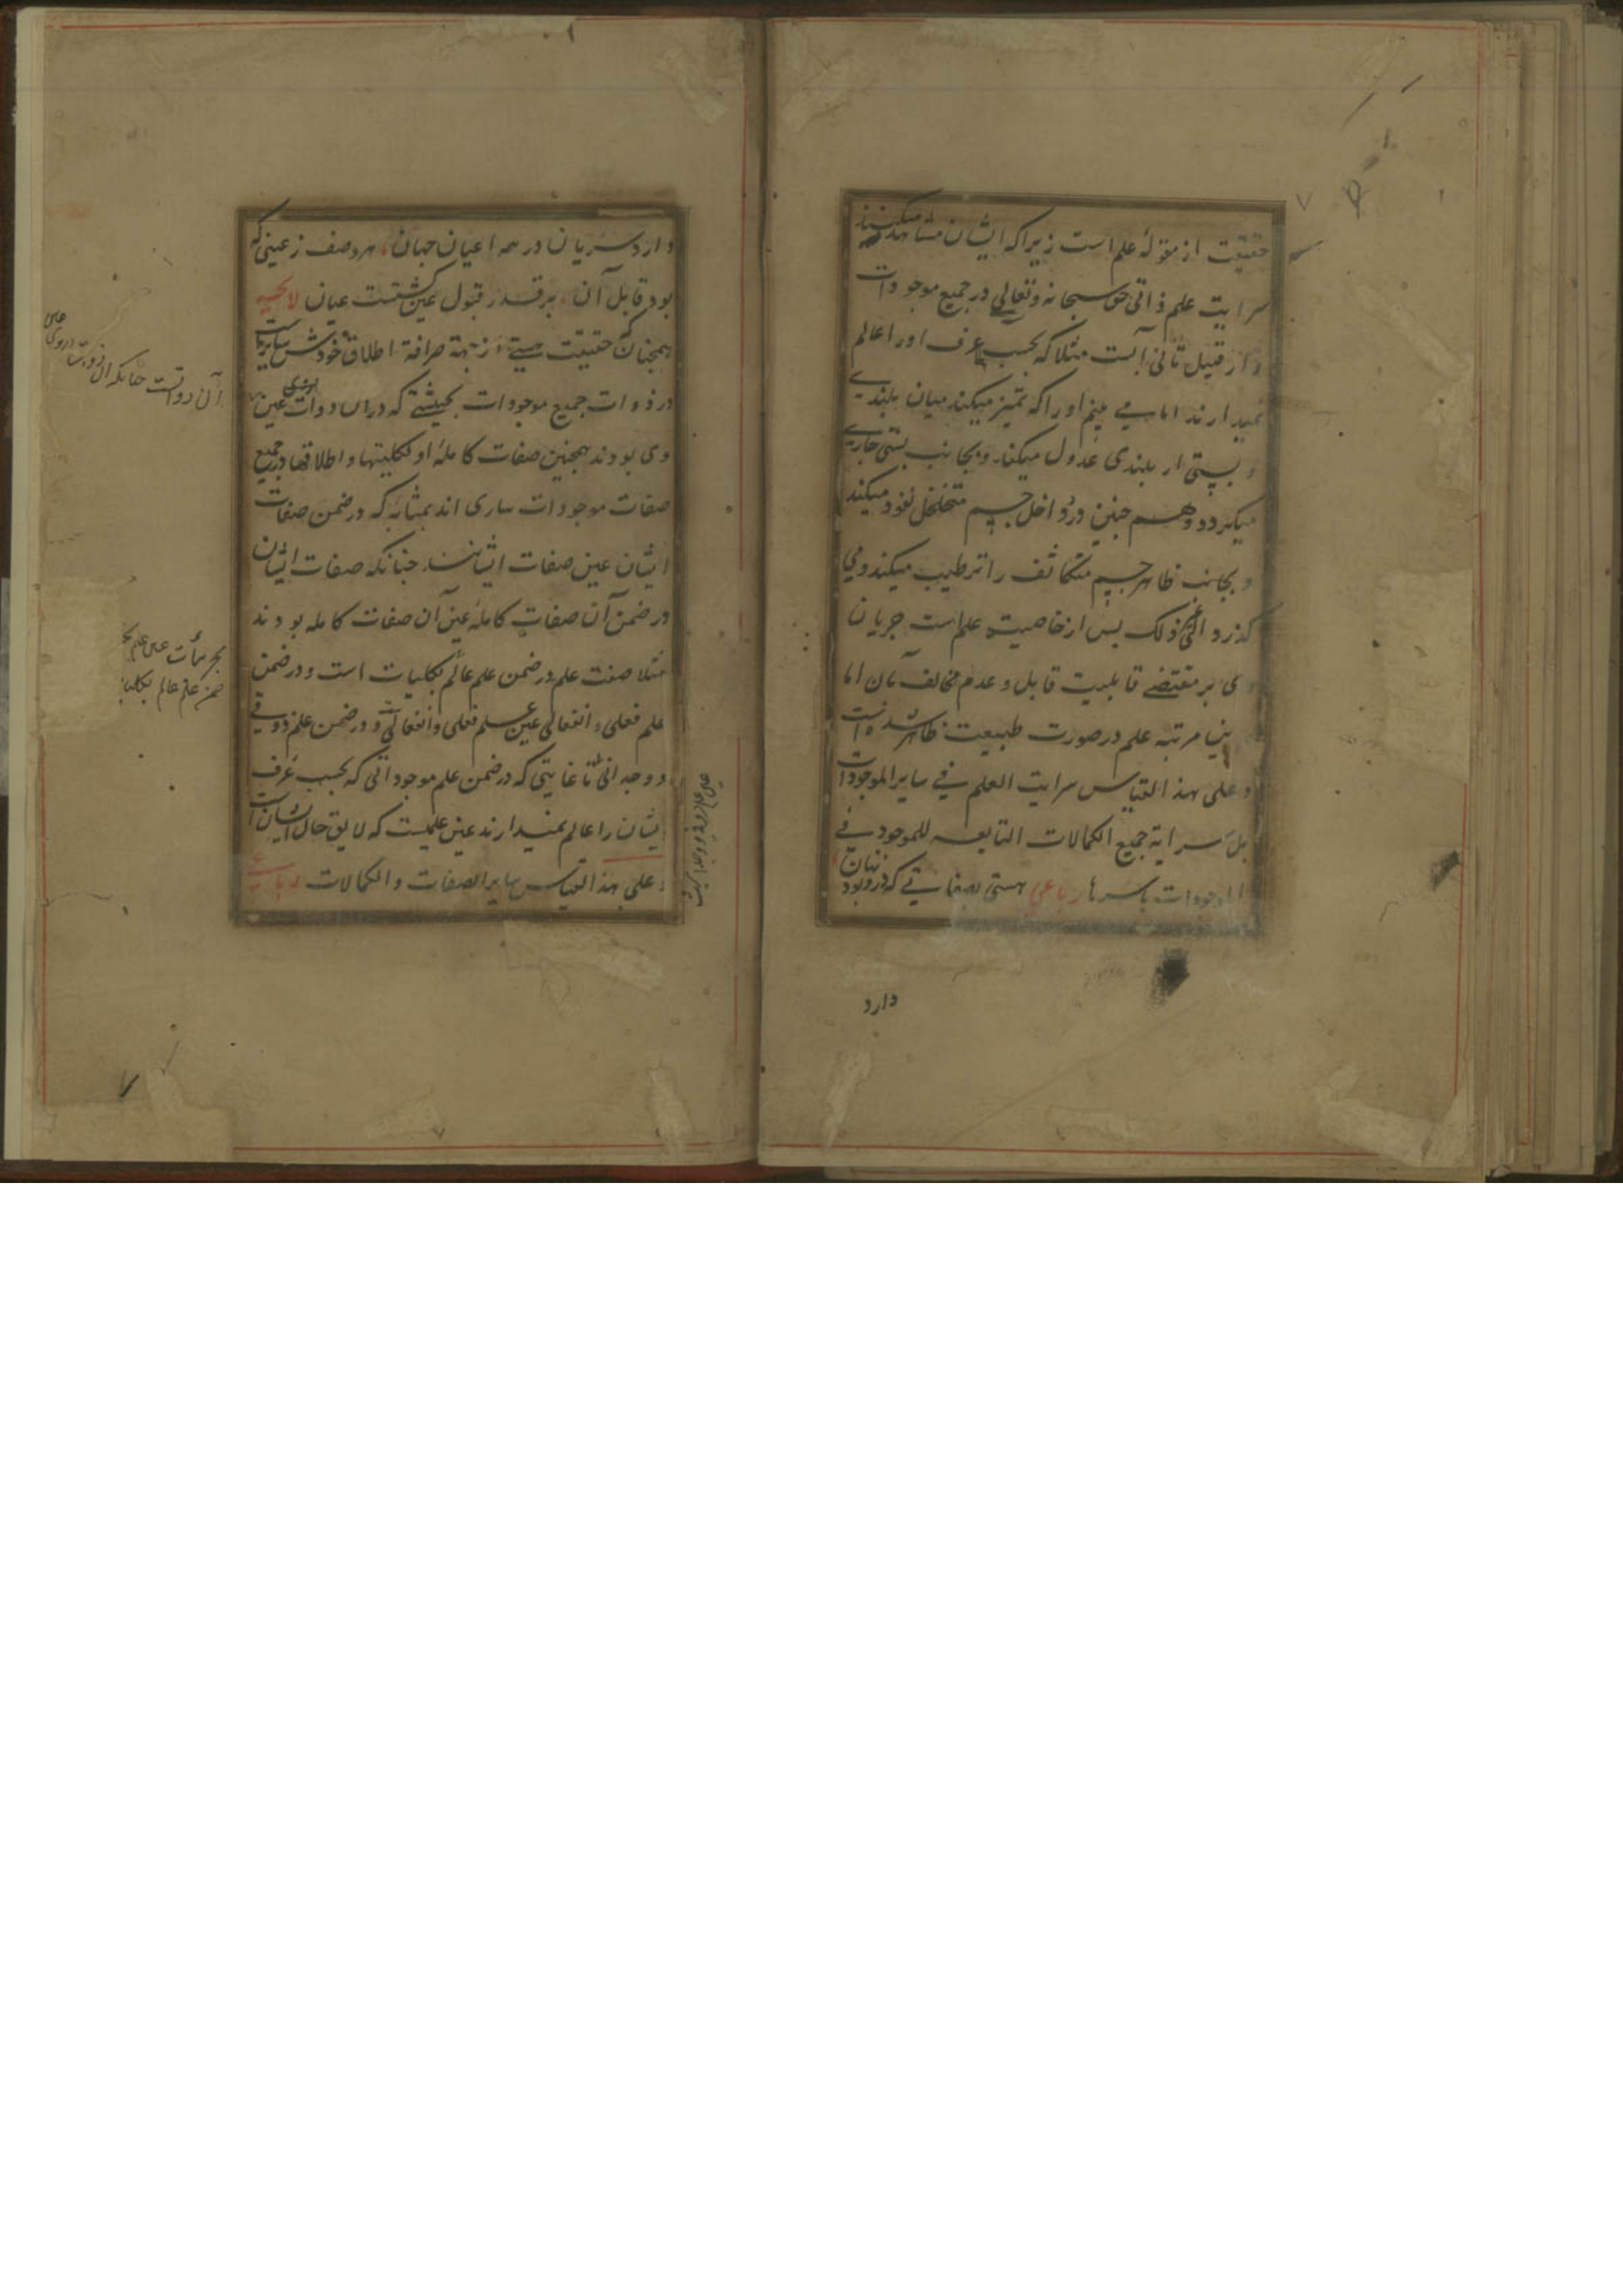 حقیقت از مقولهٔ علم است زیرا که ایشان مشاهده میکنند
سرایت علم ذاتی حق سبحانه وتعالی در جمیع موجودات
و از قبیل ثانی آبست مثلا که بحسب عرف او را عالم
نمیدارند اما می بینیم او را که تمیز میکند میان بلندی
و پستی از بلندی عدول میکند و بجانب پستی جاری
میکردد وهم چنین در داخل جسم متخلخل نفوذ میکند
و بجانب ظاهر جسم متکاثف را ترطیب میکند و می
کذرد الی غیر ذلک بس از خاصیت علم است جریان
وی بر مقتضی قابلیت قابل و عدم مخالف آن اما
درین مرتبه علم در صورت طبیعت ظاهر شده است
و علی هذا القیاس سرایت العلم فی سایر الموجودات
بل سرایة جمیع الکمالات التابعه للموجود فی
الموجودات باسرها رباعی هستی بصفاتی که درو بود نهان
دارد
دارد سریان در همه اعیان جهان هر وصف ز عینی که
بود قابل آن بر قدر قبول عین کشتست عیان لایحه
همچنانکه حقیقت هستی از جهة صرافة اطلاق خودش ساریست
در ذوات جمیع موجودات بحیثیتی که در آن ذوات عین
وی بودند همچنین صفات کاملهٔ او بکلیتها و اطلاقها در جمیع
صفات موجودات ساری اند بمثابهٔ که در ضمن صفات
ایشان عین صفات ایشانند چنانکه صفات ایشان
در ضمن آن صفات کامله عین آن صفات کامله بودند
مثلا صفت علم در ضمن علم عالم بکلیات است و در ضمن
علم فعلی و انفعالی عین علم فعلی وانفعالی و در ضمن علم ذوقی
و وجدانی تا غایتی که در ضمن علم موجوداتی که بحسب عرف
ایشان را عالم نمیدارند عین علمیست که لایق حال ایشان است
وعلی هذا القیاس سایر الصفات والکمالات رباعی